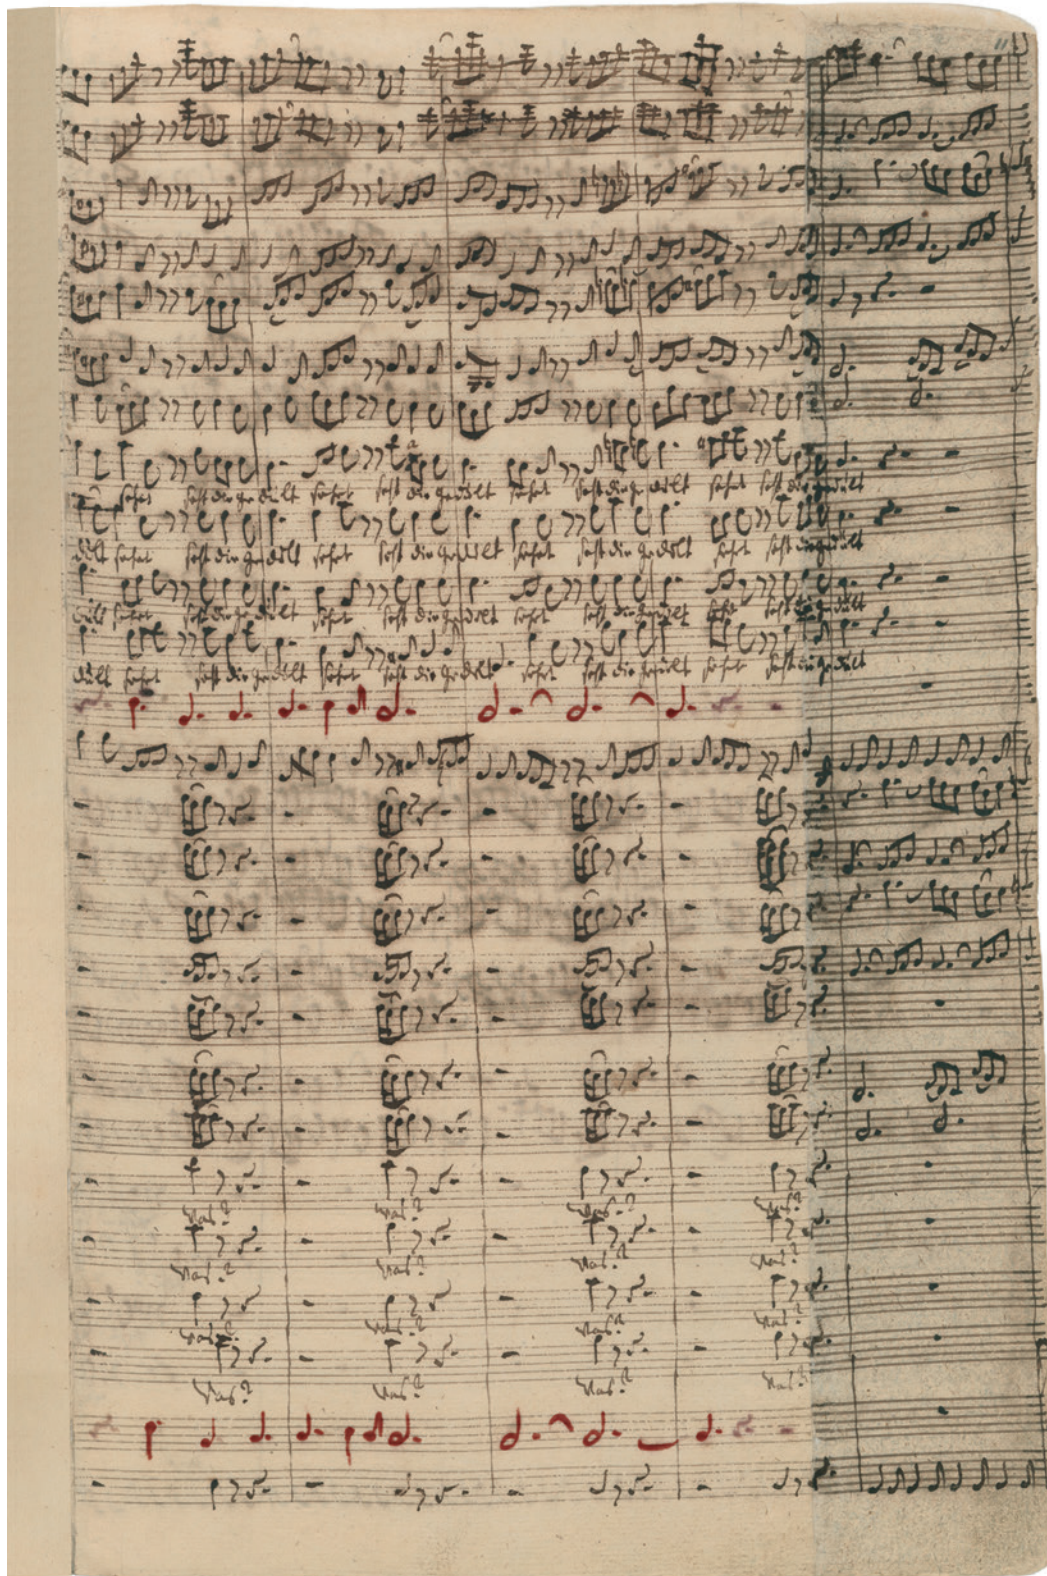 sehet seht die gedult sehet seht die gedult sehet seht die gedult sehet seht die gedult
dult sehet seht die gedult sehet seht die gedult sehet seht die gedult sehet seht die gedult
dult sehet seht die gedult sehet seht die gedult sehet seht die gedult sehet seht die gedult
dult sehet seht die gedult sehet seht die gedult sehet seht die gedult sehet seht die gedult
Was? Was? Was? Was?
Was? Was? Was? Was?
Was? Was? Was? Was?
Was? Was? Was? Was?